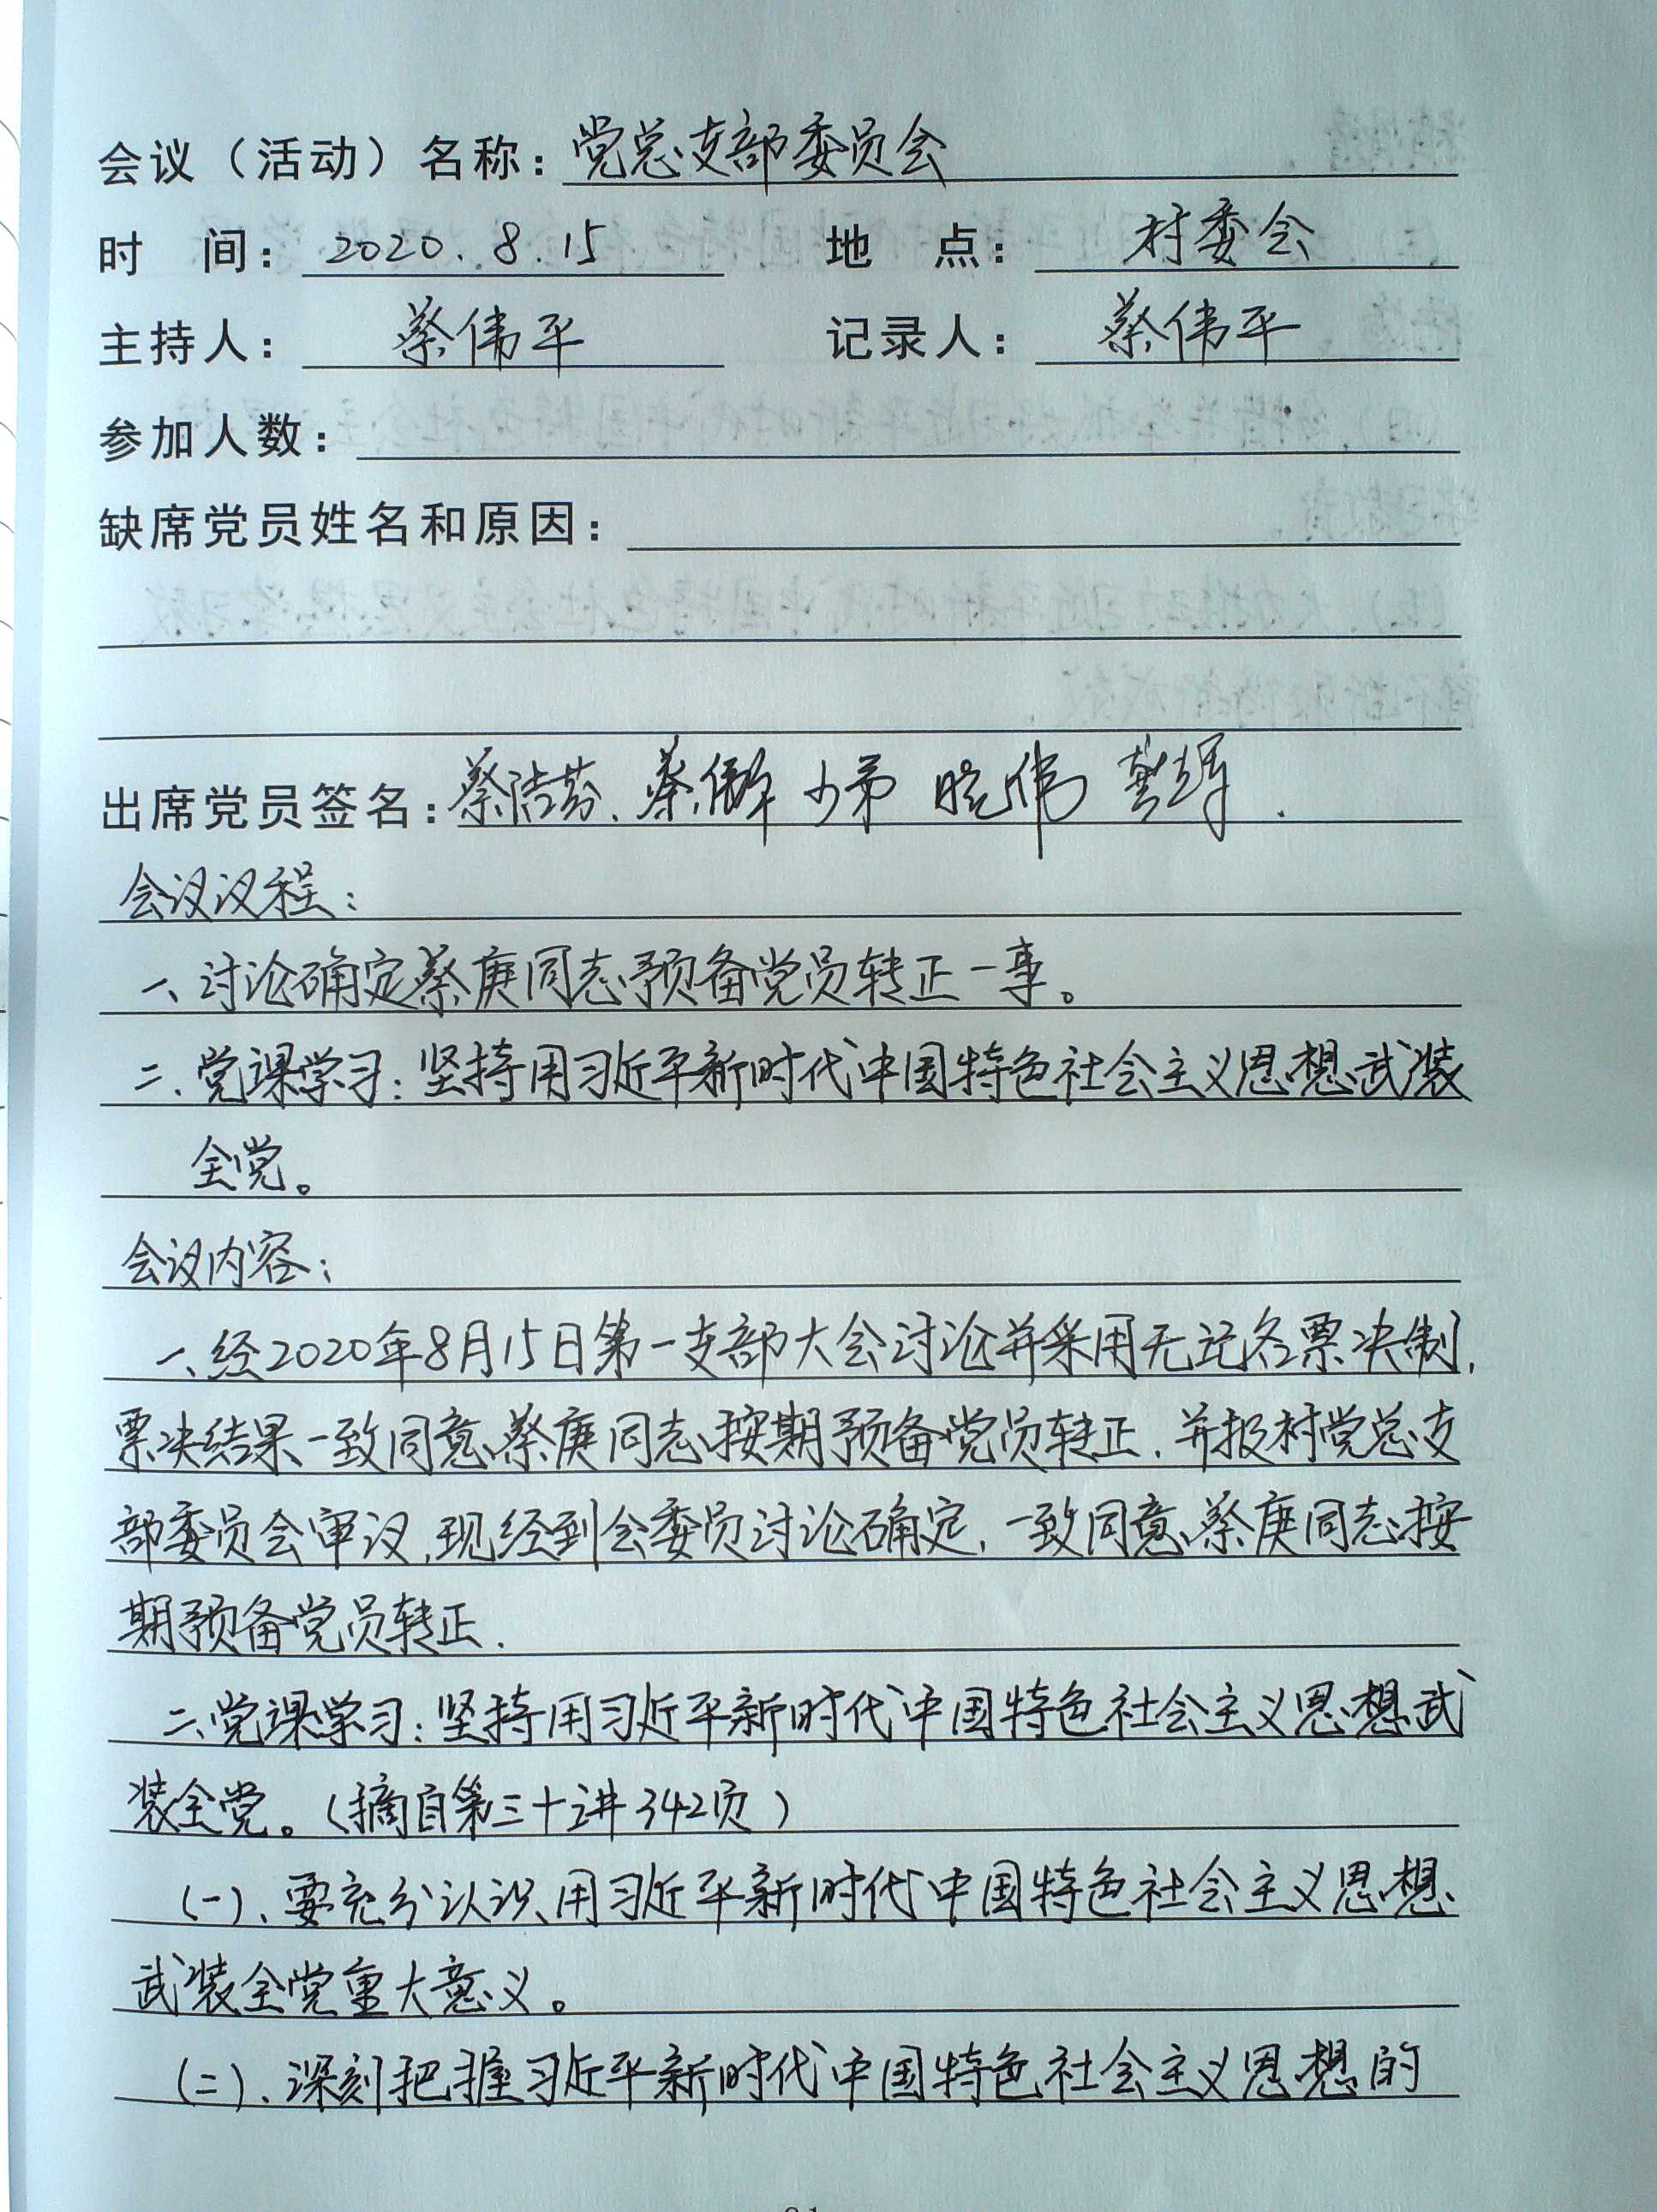 会议（活动）名称：党总支部委员会
时　间：2020.8.15　地　点：村委会
主持人：蔡伟平　记录人：蔡伟平
参加人数：
缺席党员姓名和原因：
出席党员签名：蔡洁芬、蔡 少弟 晓伟
会议议程：
一、讨论确定蔡庚同志预备党员转正一事。
二、党课学习：坚持用习近平新时代中国特色社会主义思想武装
全党。
会议内容：
一、经2020年8月15日第一支部大会讨论并采用无记名票决制，
票决结果一致同意蔡庚同志按期预备党员转正．并报村党总支
部委员会审议，现经到会委员讨论确定，一致同意蔡庚同志按
期预备党员转正．
二、党课学习：坚持用习近平新时代中国特色社会主义思想武
装全党。（摘自第三十讲342页）
（一）、要充分认识用习近平新时代中国特色社会主义思想
武装全党重大意义。
（二）、深刻把握习近平新时代中国特色社会主义思想的